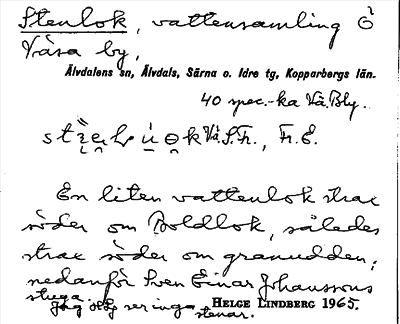 Stenlok, vattensamling Ö
Våsa by,
Älvdalens sn, Älvdals, Särna o. Idre tg, Kopparbergs län.
40 spec.-ka Vå. Bly.
Vå. S. Fr., Fr. E.
En liten vattenlok strax
söder om Boldlok, således
strax söder om granudden;
nedanför Sven Einar Johanssons
stuga. Jag ser inga stenar.
HELGE LINDBERG 1965.